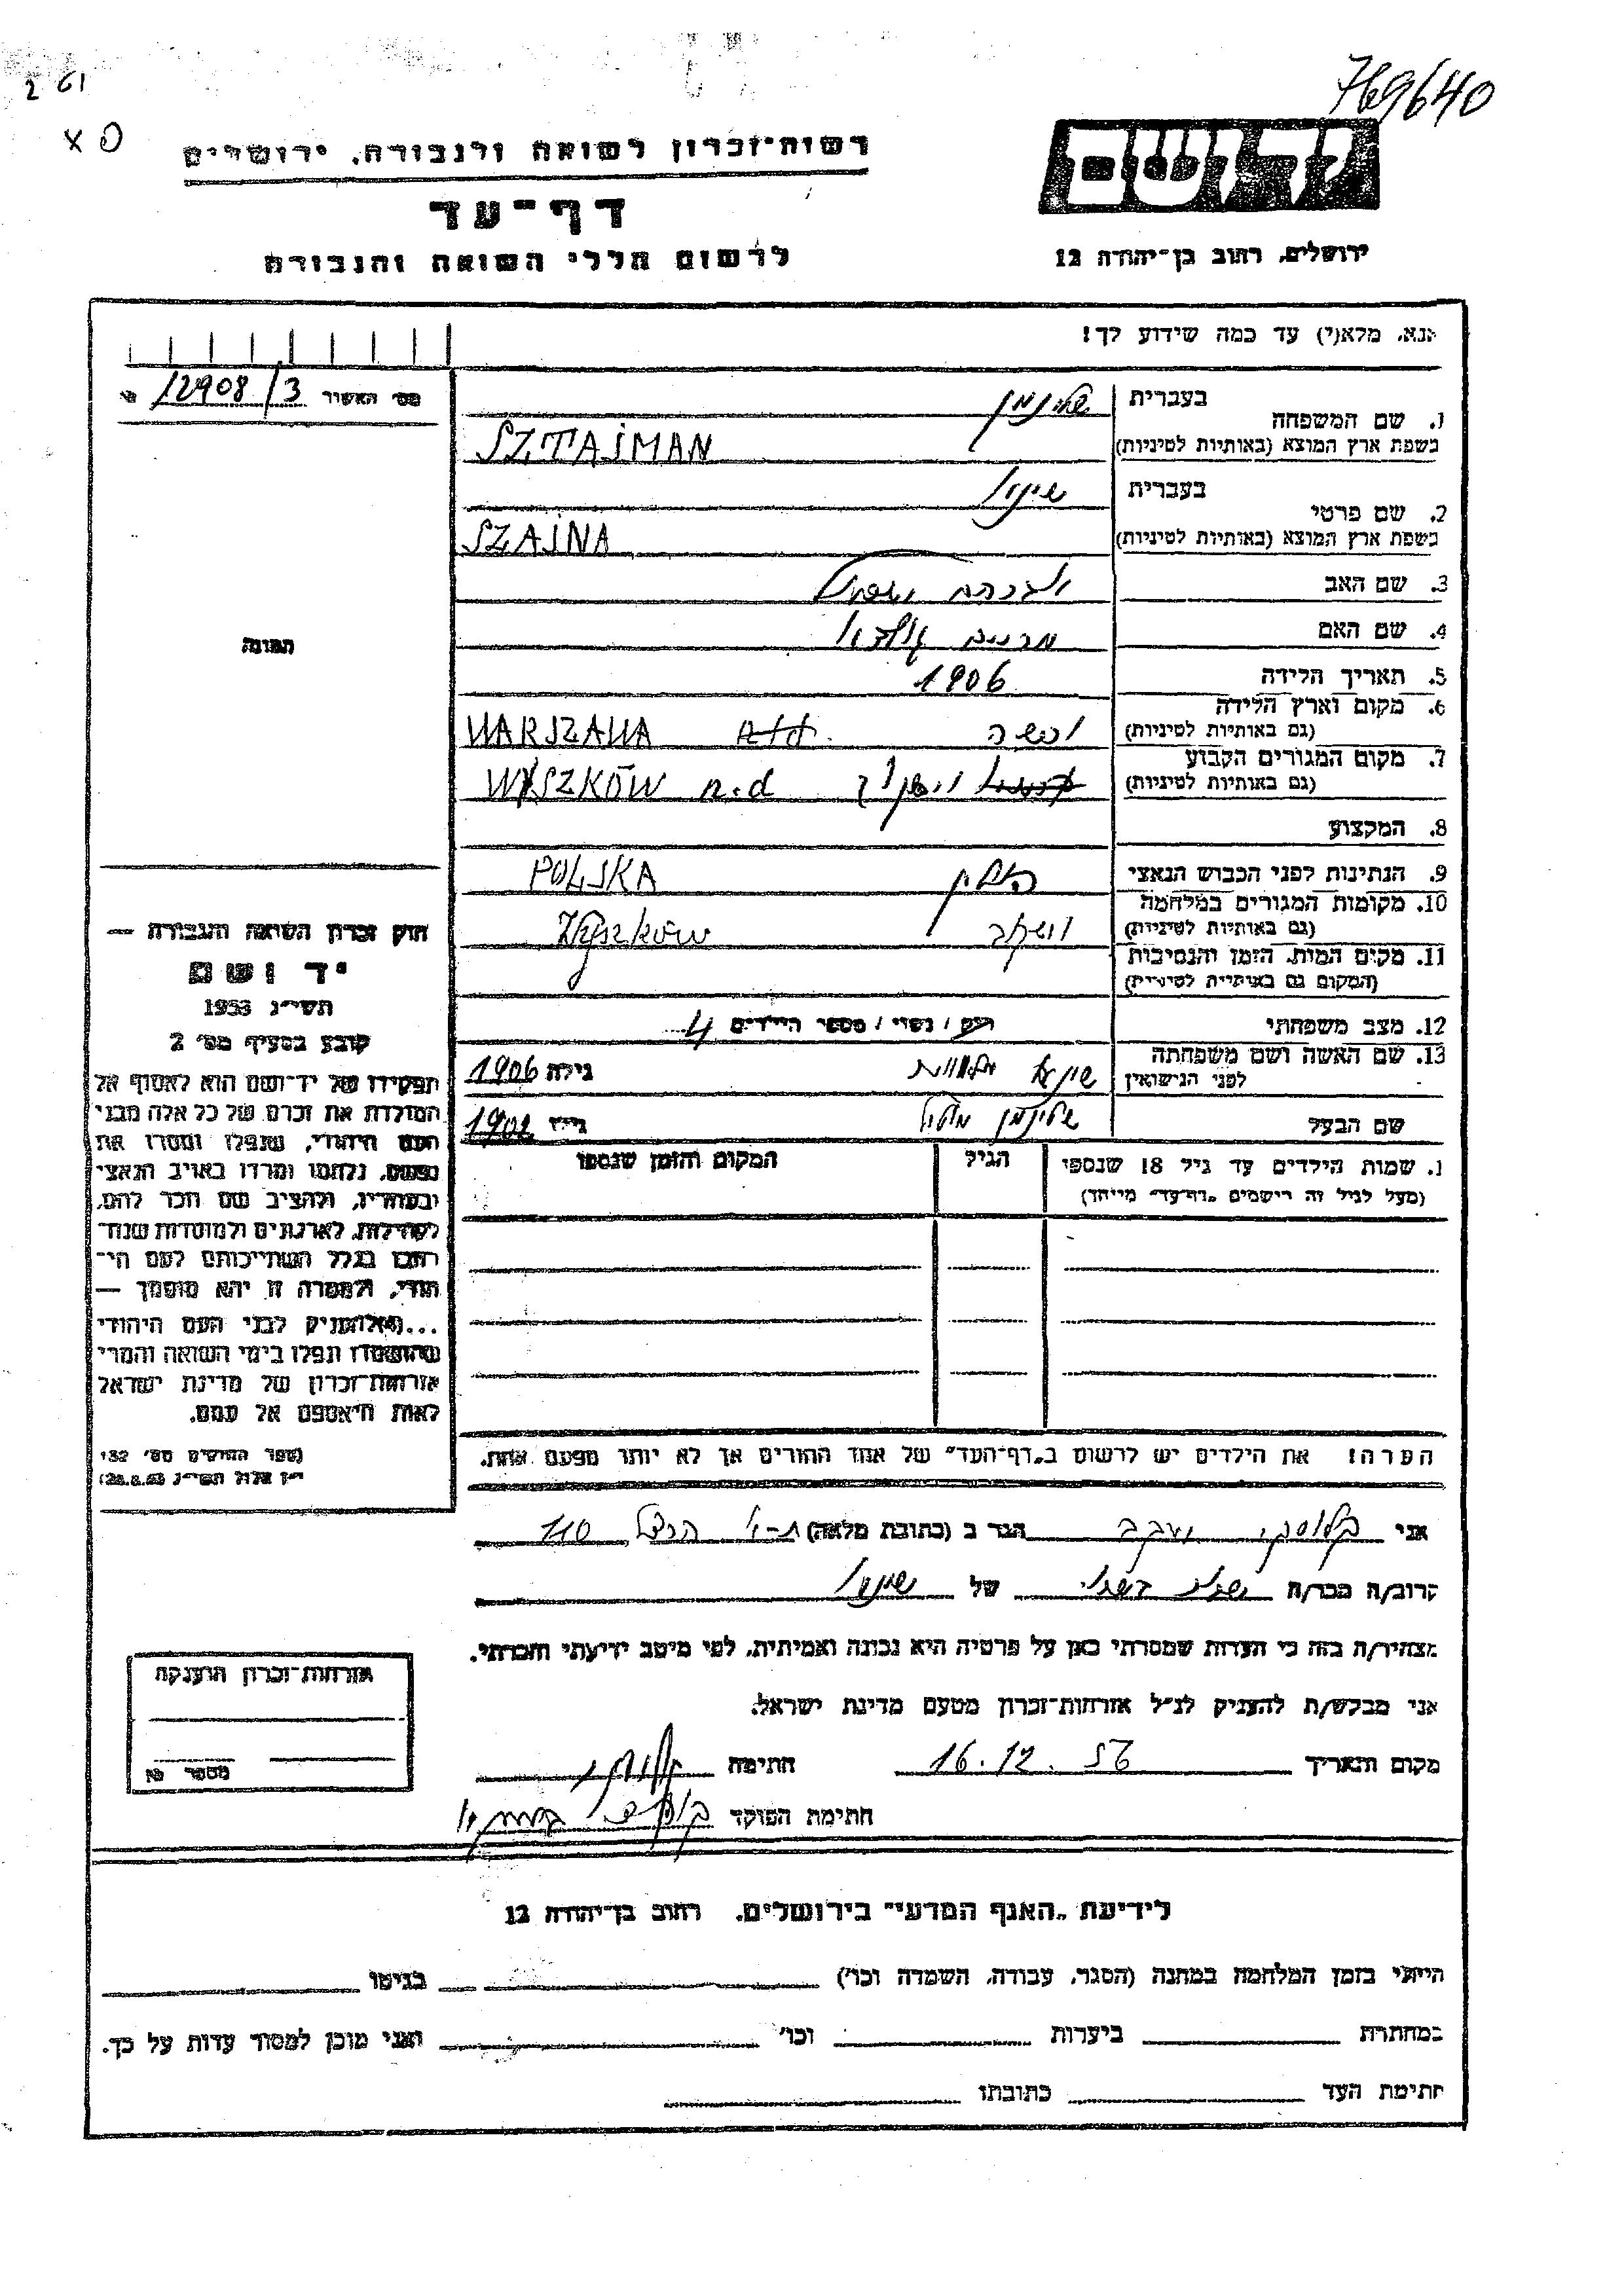 769640
2 61
x
רשות־זכרון לשואה ולגבורה, ירושלים
יד ושם
דף־עד
לרשום חללי השואה והגבורה
ירושלים, רחוב בן־יהודה 12
אנא, מלא(י) עד כמה שידוע לך!
מס׳ האשור 12908/3
1. שם המשפחה
בעברית שטיימן
בשפת ארץ המוצא (באותיות לטיניות) SZTAJMAN
2. שם פרטי
בעברית
בשפת ארץ המוצא (באותיות לטיניות) SZAJNA
3. שם האב אברהם
4. שם האם מרים
5. תאריך הלידה 1906
6. מקום וארץ הלידה
(גם באותיות לטיניות) ורשה WARSZAWA
7. מקום המגורים הקבוע
(גם באותיות לטיניות) WYSZKÓW n.d
8. המקצוע
9. הנתינות לפני הכבוש הנאצי פולין POLSKA
10. מקומות המגורים במלחמה
(גם באותיות לטיניות) Wyszków
11. מקום המות, הזמן והנסיבות
(המקום גם באותיות לטיניות)
12. מצב משפחתי רווק / נשוי / מספר הילדים 4
13. שם האשה ושם משפחתה
לפני הנישואין גילה 1906
שם הבעל שטיימן גילו 1902
1. שמות הילדים עד גיל 18 שנספו
(מעל לגיל זה רישמים "דף־עד" מיוחד)
הגיל
המקום והזמן שנספו
הערה! את הילדים יש לרשום ב"דף־העד" של אחד ההורים אך לא יותר מפעם אחת.
התמונה
חוק זכרון השואה והגבורה —
יד ושם
תשי״ג 1953
קובע בסעיף מס׳ 2
תפקידו של יד־ושם הוא לאסוף אל
המולדת את זכרם של כל אלה מבני
העם היהודי, שנפלו ומסרו את
נפשם, נלחמו ומרדו באויב הנאצי
ובעוזריו, ולהציב שם וזכר להם,
לקהילות, לארגונים ולמוסדות שנח־
רבו בגלל השתייכותם לעם הי־
הודי, ולמטרה זו יהא מוסמך —
...(4) להעניק לבני העם היהודי
שהושמדו ונפלו בימי השואה והמרי
אזרחות־זכרון של מדינת ישראל
לאות היאספם אל עמם.
(ספר החוקים מס׳ 132
י״ז אלול תשי״ג 28.8.53)
אני יעקב הגר ב (כתובת מלאה) ת-א 110
קרוב/ה מכר/ה של
מצהיר/ה בזה כי העדות שמסרתי כאן על פרטיה היא נכונה ואמיתית, לפי מיטב ידיעתי והכרתי.
אני מבקש/ת להעניק לנ״ל אזרחות־זכרון מטעם מדינת ישראל.
מקום ותאריך 16.12.56 חתימה
חתימת הפוקד
אזרחות־זכרון הוענקה
מספר
לידיעת "האגף המדעי" בירושלים, רחוב בן־יהודה 12
הייתי בזמן המלחמה במחנה (הסגר, עבודה, השמדה וכו׳) בגיטו
במחתרת ביערות וכו׳ ואני מוכן למסור עדות על כך.
חתימת העד כתובתו